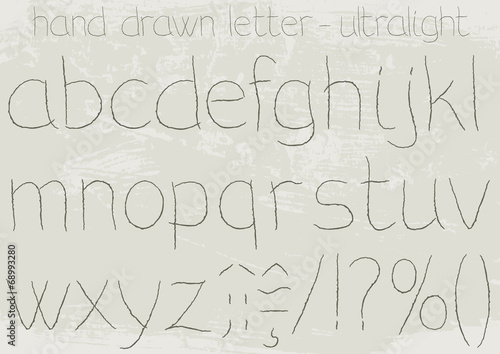 hand drawn letter - ultralight
abcdefghijkl
mnopqrstuv
wxyz;:=/!?%()
Adobe Stock | #68993280